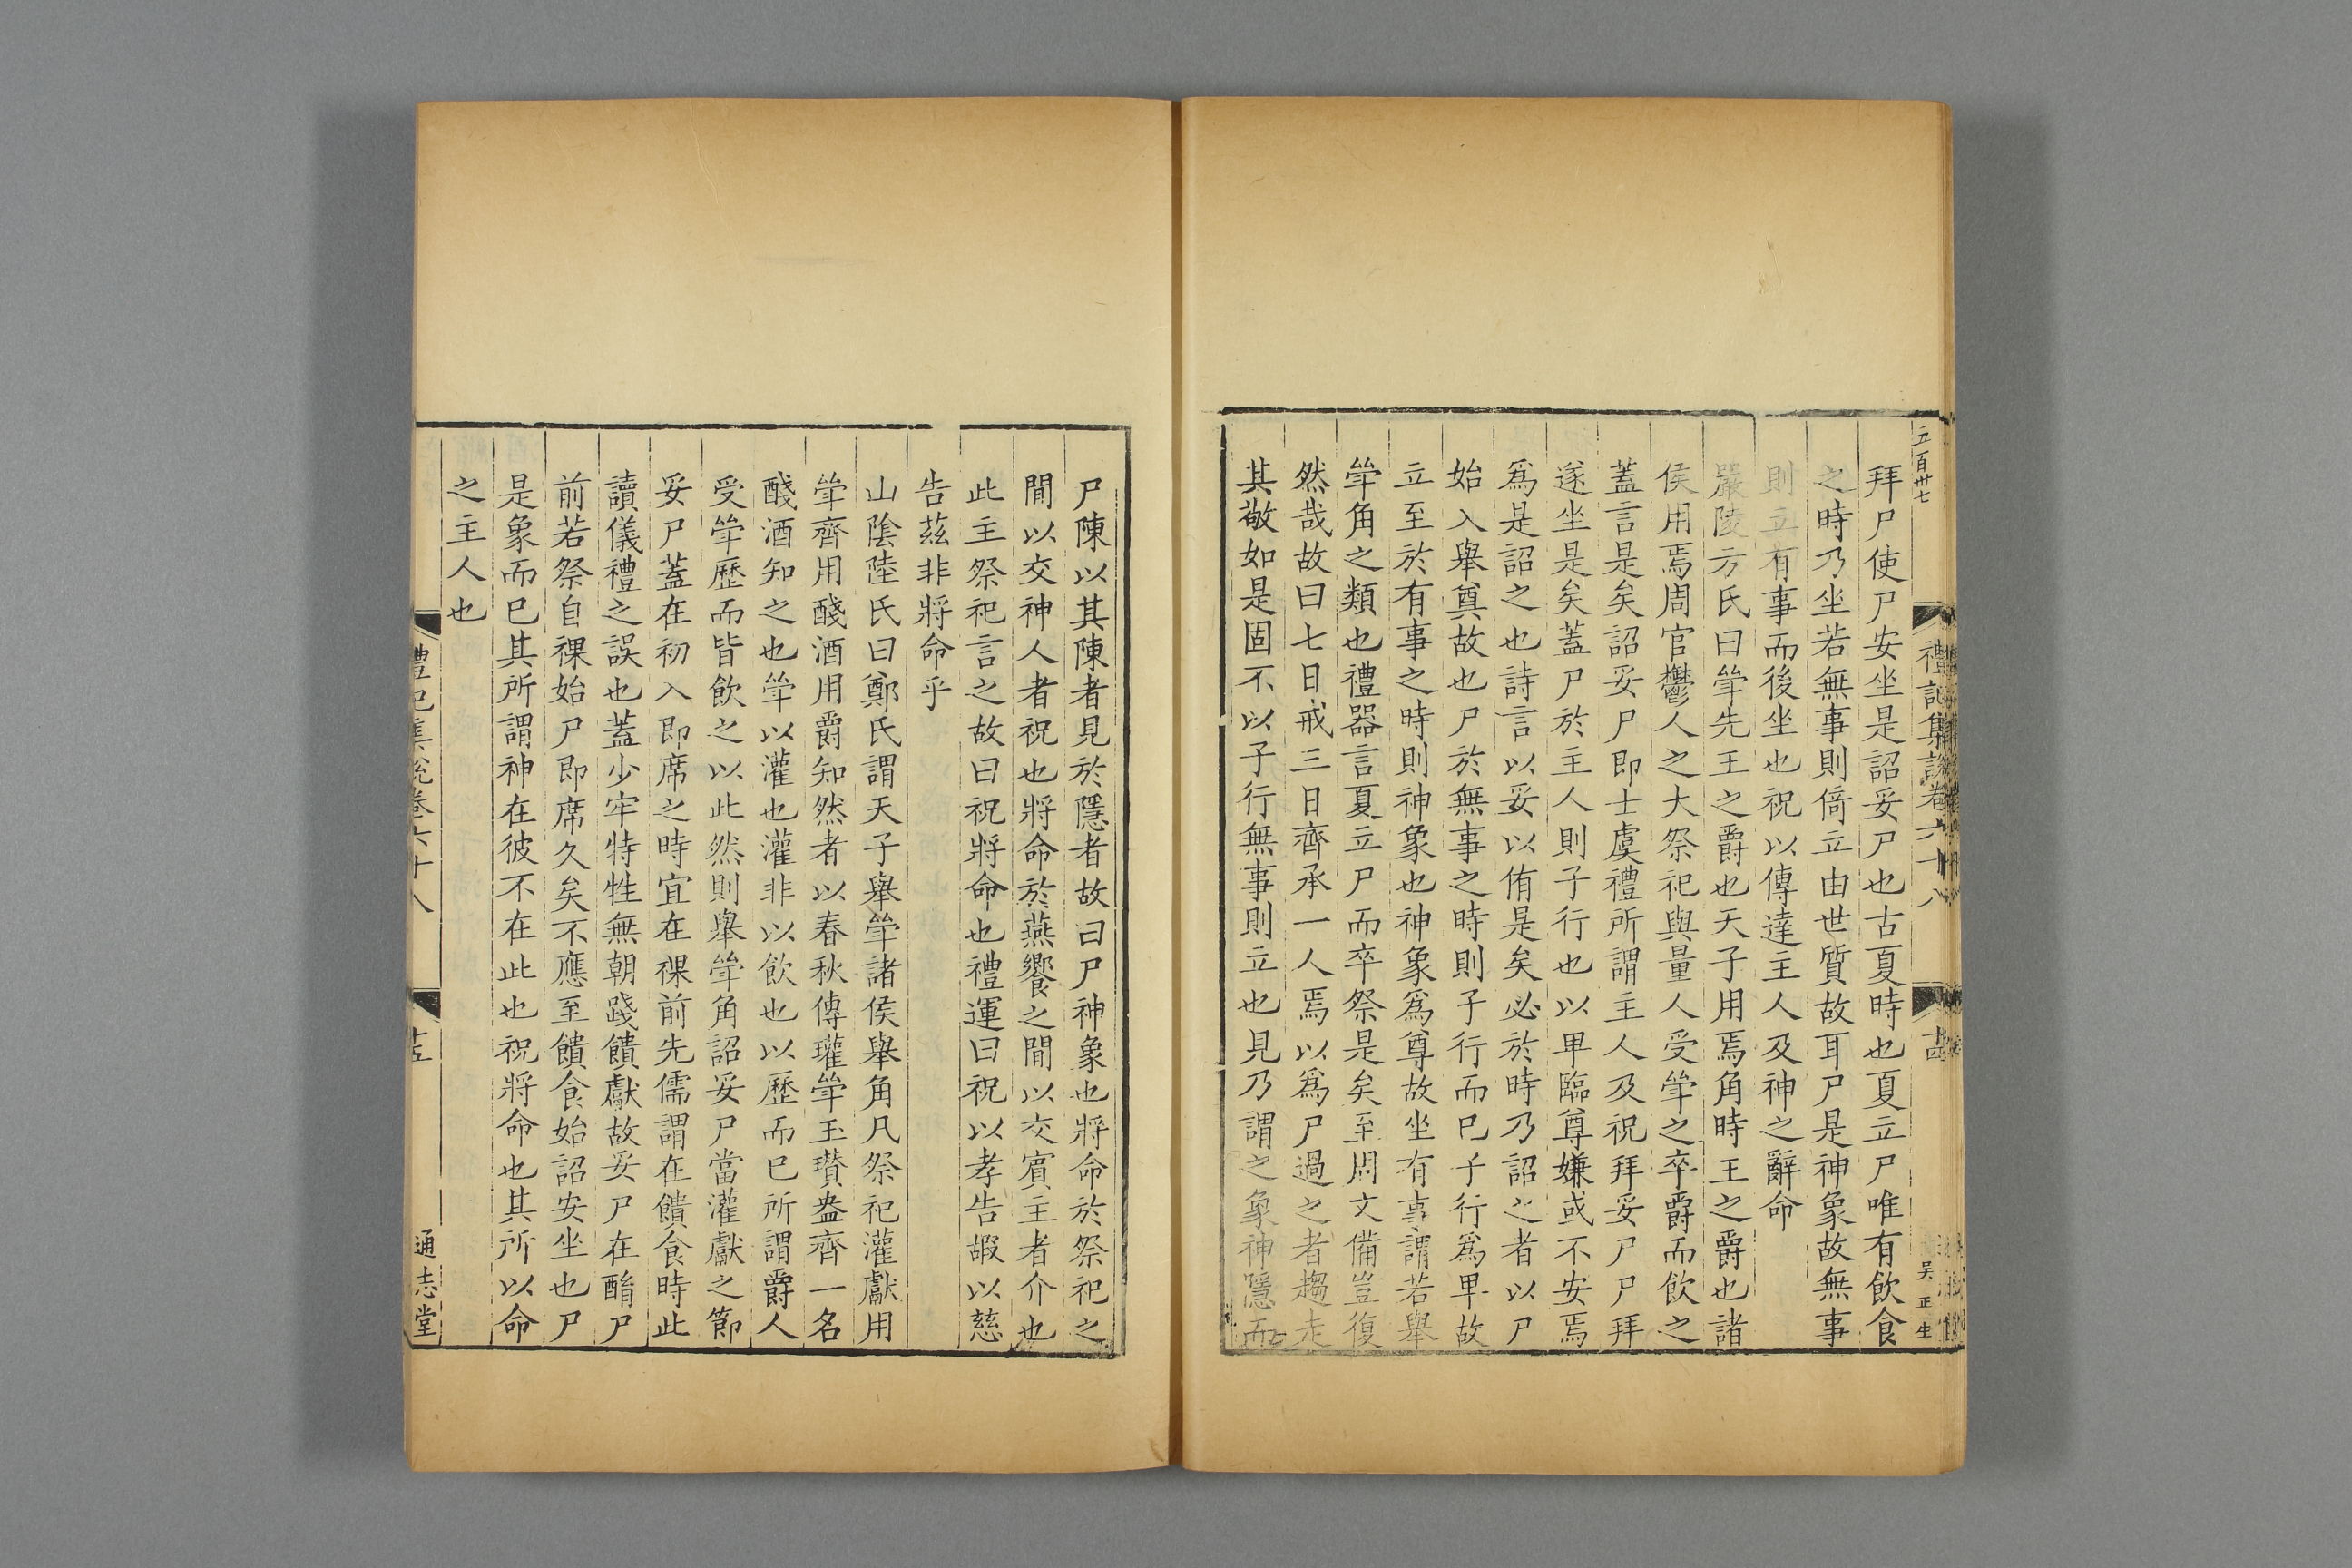 五百卅七
禮記集說卷六十八
十四
吴正生
拜尸使尸安坐是詔妥尸也古夏時也夏立尸唯有飲食
之時乃坐若無事則倚立由世質故耳尸是神象故無事
則立有事而後坐也祝以傳達主人及神之辭命
嚴陵方氏曰斝先王之爵也天子用焉角時王之爵也諸
侯用焉周官鬱人之大祭祀與量人受斝之卒爵而飲之
蓋言是矣詔妥尸即士虞禮所謂主人及祝拜妥尸尸拜
遂坐是矣蓋尸於主人則子行也以卑臨尊嫌或不安焉
爲是詔之也詩言以妥以侑是矣必於時乃詔之者以尸
始入舉奠故也尸於無事之時則子行而已子行爲卑故
立至於有事之時則神象也神象爲尊故坐有事謂若舉
斝角之類也禮器言夏立尸而卒祭是矣至周文備豈復
然哉故曰七日戒三日齊承一人焉以爲尸過之者趨走
其敬如是固不以子行無事則立也見乃謂之象神隱而
尸陳以其陳者見於隱者故曰尸神象也將命於祭祀之
間以交神人者祝也將命於燕饗之間以交賓主者介也
此主祭祀言之故曰祝將命也禮運曰祝以孝告嘏以慈
告茲非將命乎
山陰陸氏曰鄭氏謂天子舉斝諸侯舉角凡祭祀灌獻用
斝齊用醆酒用爵知然者以春秋傳瓘斝玉瓚盎齊一名
醆酒知之也斝以灌也灌非以飲也以歷而已所謂爵人
受斝歷而皆飲之以此然則舉斝角詔妥尸當灌獻之節
妥尸蓋在初入即席之時宜在祼前先儒謂在饋食時此
讀儀禮之誤也蓋少牢特牲無朝踐饋獻故妥尸在酳尸
前若祭自祼始尸即席久矣不應至饋食始詔安坐也尸
是象而已其所謂神在彼不在此也祝將命也其所以命
之主人也
禮記集說卷六十八
十五
通志堂